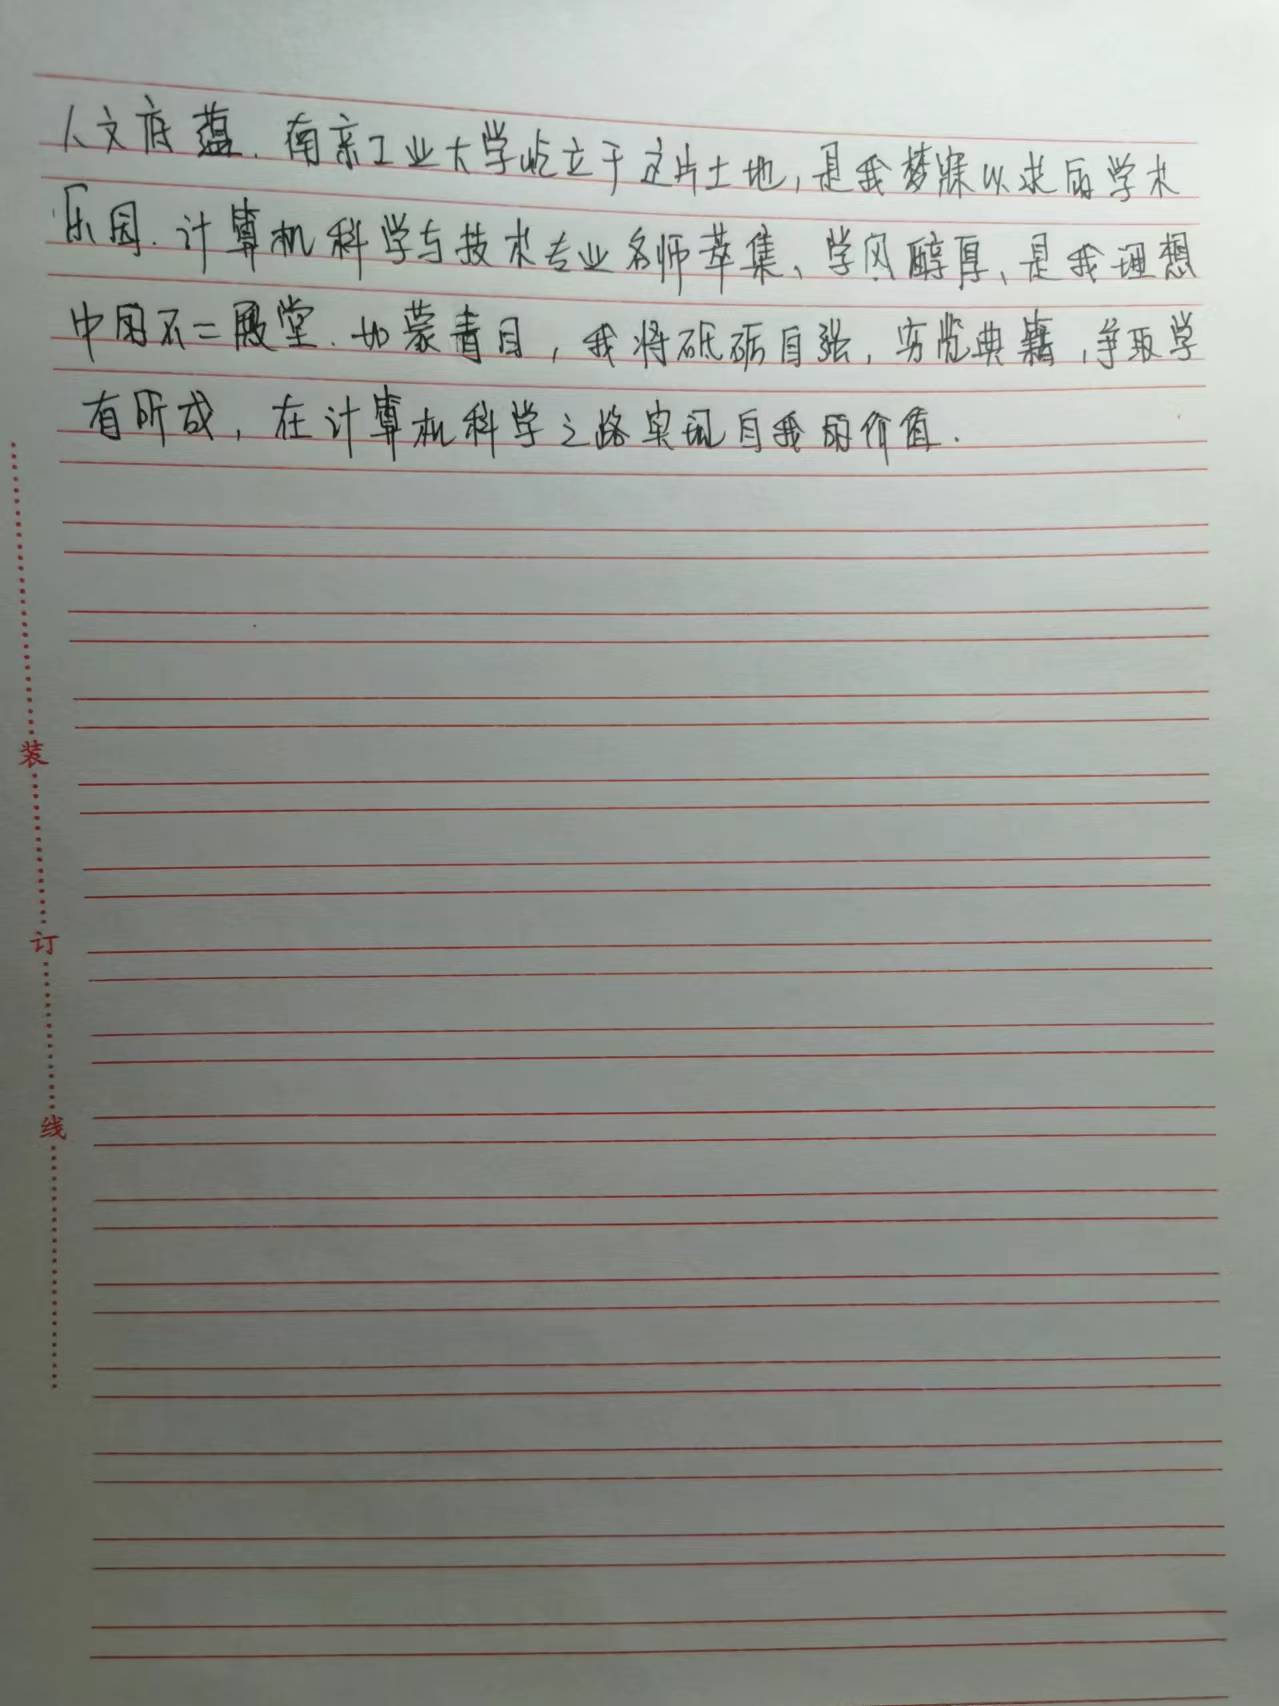 人文底蕴.南京工业大学屹立于这片土地,是我梦寐以求的学术
乐园.计算机科学与技术专业名师萃集、学风醇厚、是我理想
中的不二殿堂.如蒙青目,我将砥砺自强,穷览典籍,争取学
有所成,在计算机科学之路实现自我的价值.
装
订
线